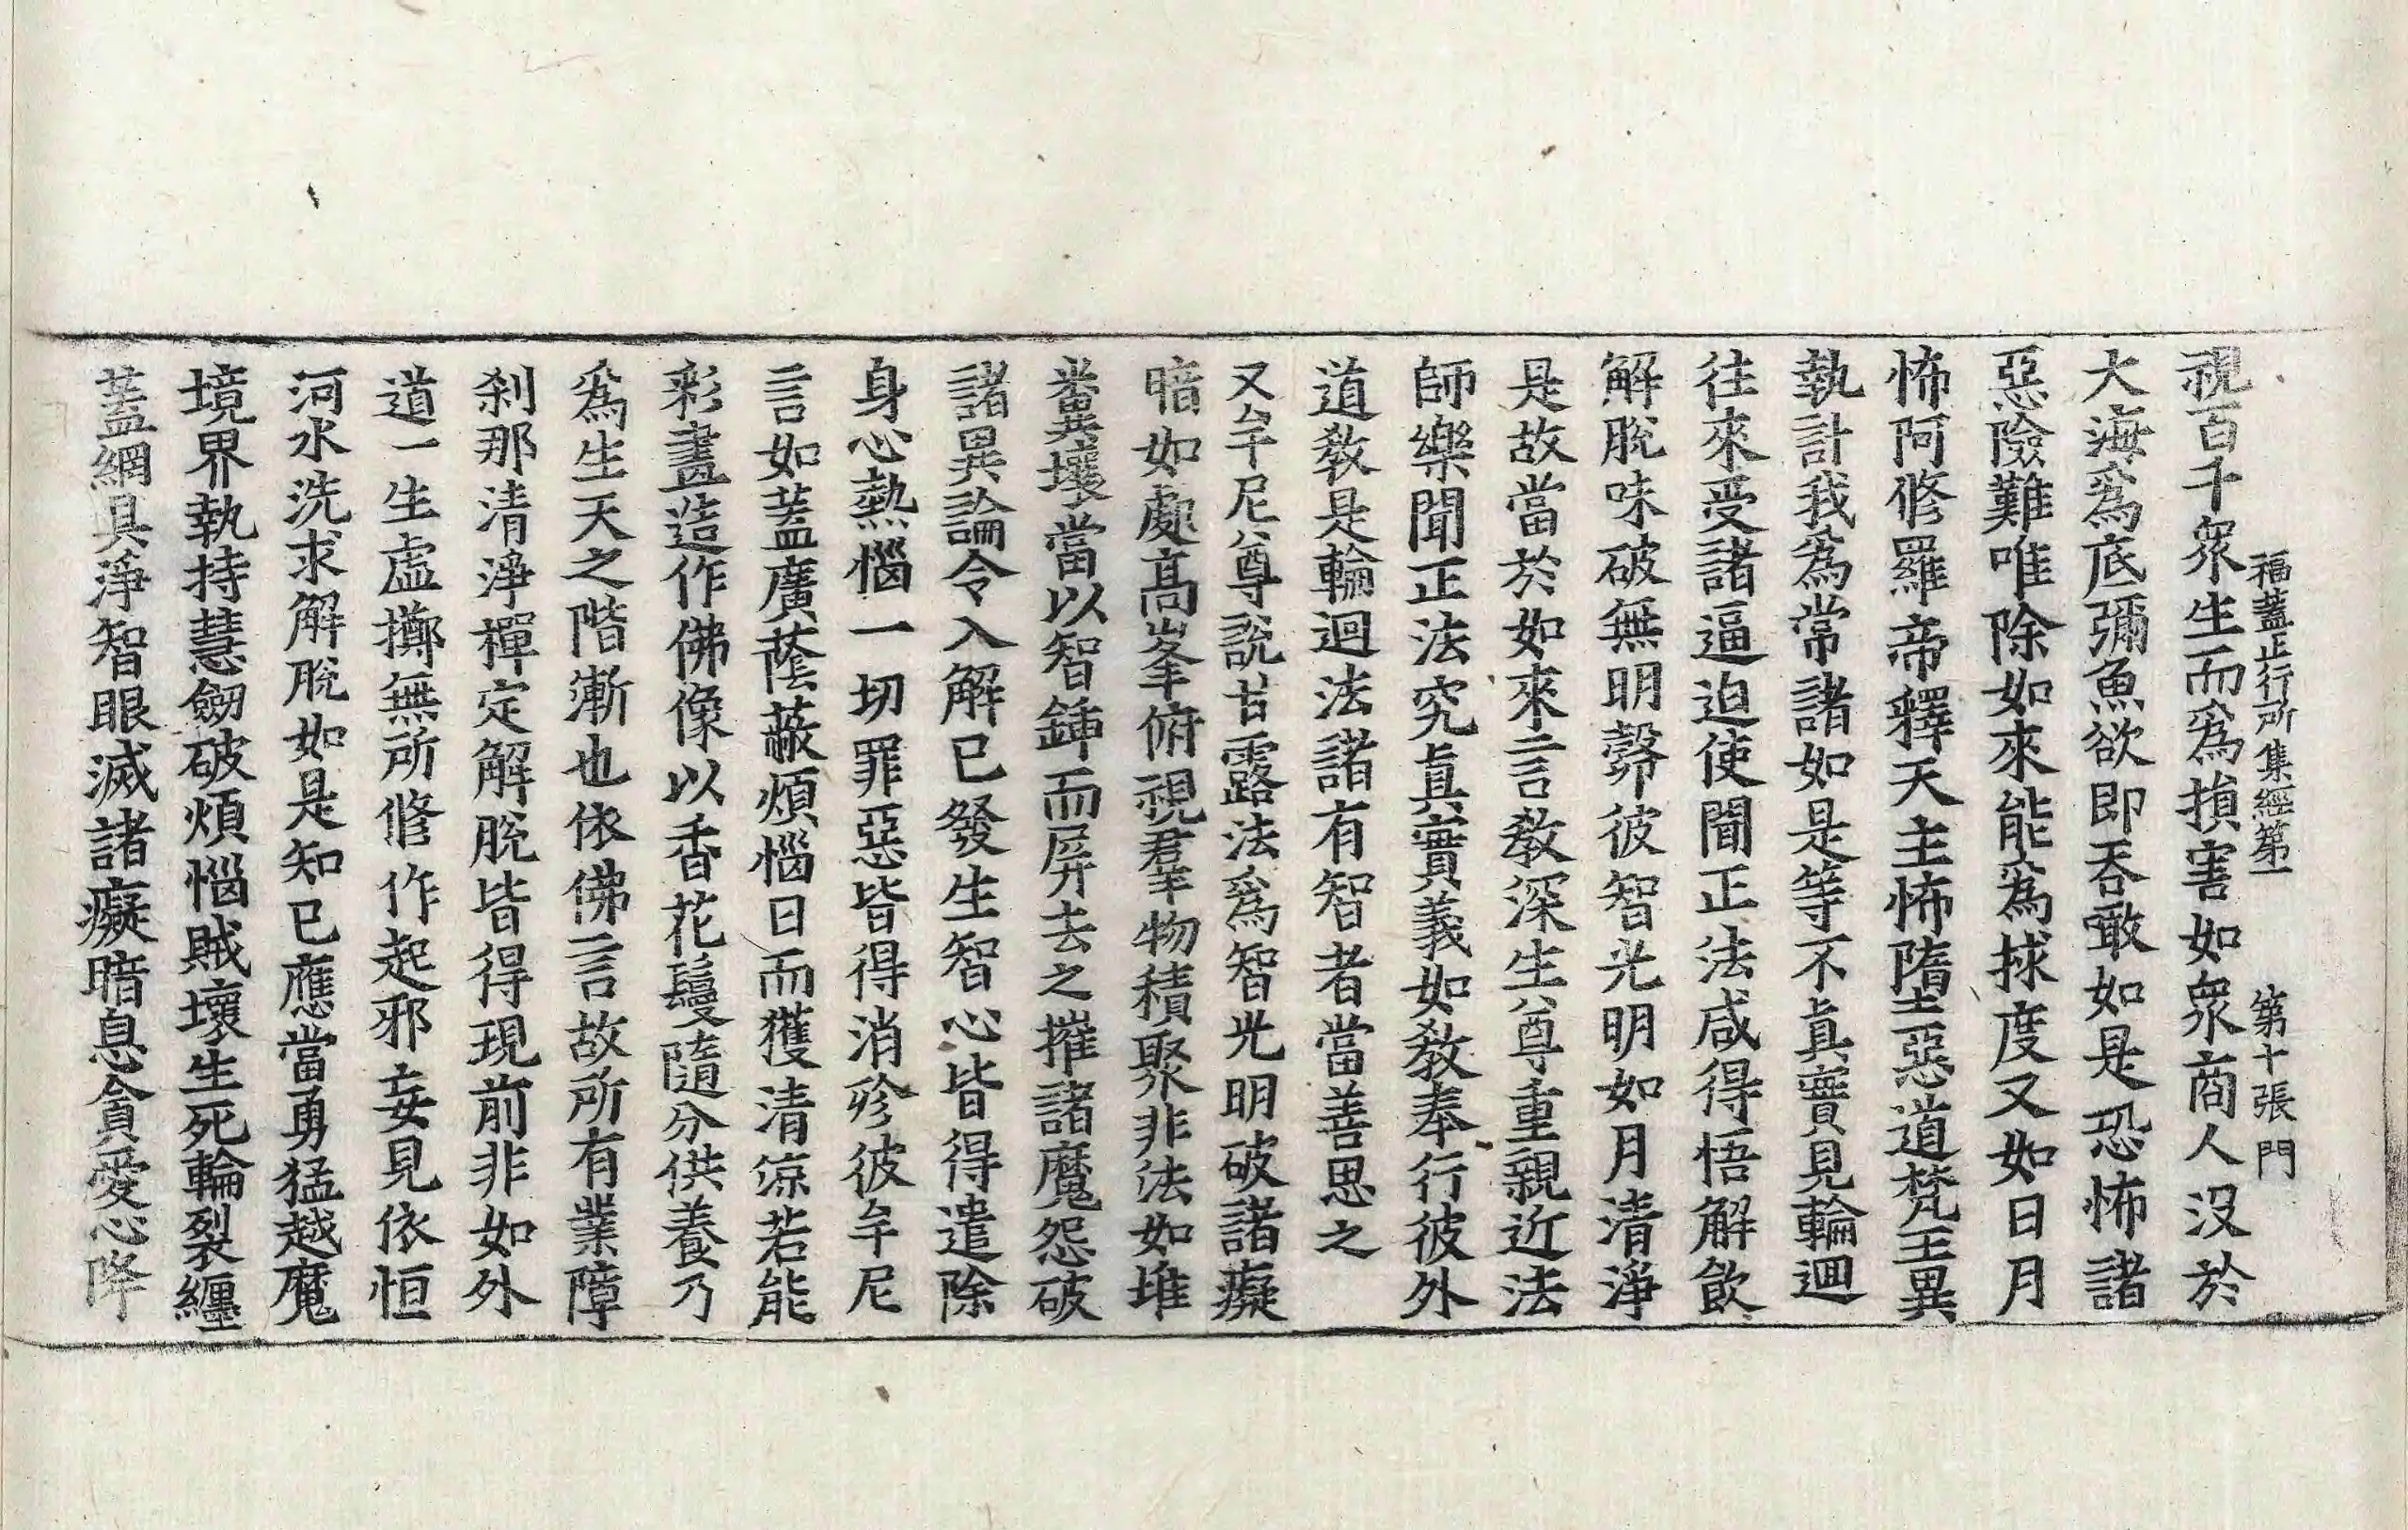 福蓋正行所集經第一　第十張　門
視百千衆生而爲損害如衆商人没於
大海爲底彌魚欲即吞噉如是恐怖諸
惡險難唯除如來能爲捄度又如日月
怖阿脩羅帝釋天主怖墮惡道梵王異
執計我爲常諸如是等不眞實見輪迴
往來受諸逼迫使聞正法咸得悟解飮
解脫味破無明㲉彼智光明如月清淨
是故當於如來言敎深生尊重親近法
師樂聞正法究眞實義如敎奉行彼外
道敎是輪迴法諸有智者當善思之
又牟尼尊說甘露法爲智光明破諸癡
暗如處高峯俯視羣物積聚非法如堆
糞壤當以智鍤而屛去之摧諸魔怨破
諸異論令入解已發生智心皆得遣除
身心熱惱一切罪惡皆得消殄彼牟尼
言如蓋廣蔭蔽煩惱日而獲清涼若能
彩畫造作佛像以香花鬘隨分供養乃
爲生天之階漸也依佛言故所有業障
刹那清淨禪定解脫皆得現前非如外
道一生虛擲無所修作起邪妄見依恒
河水洗求解脫如是知已應當勇猛越魔
境界執持慧劒破煩惱賊壞生死輪裂纏
蓋網具淨智眼滅諸癡暗息貪愛心降